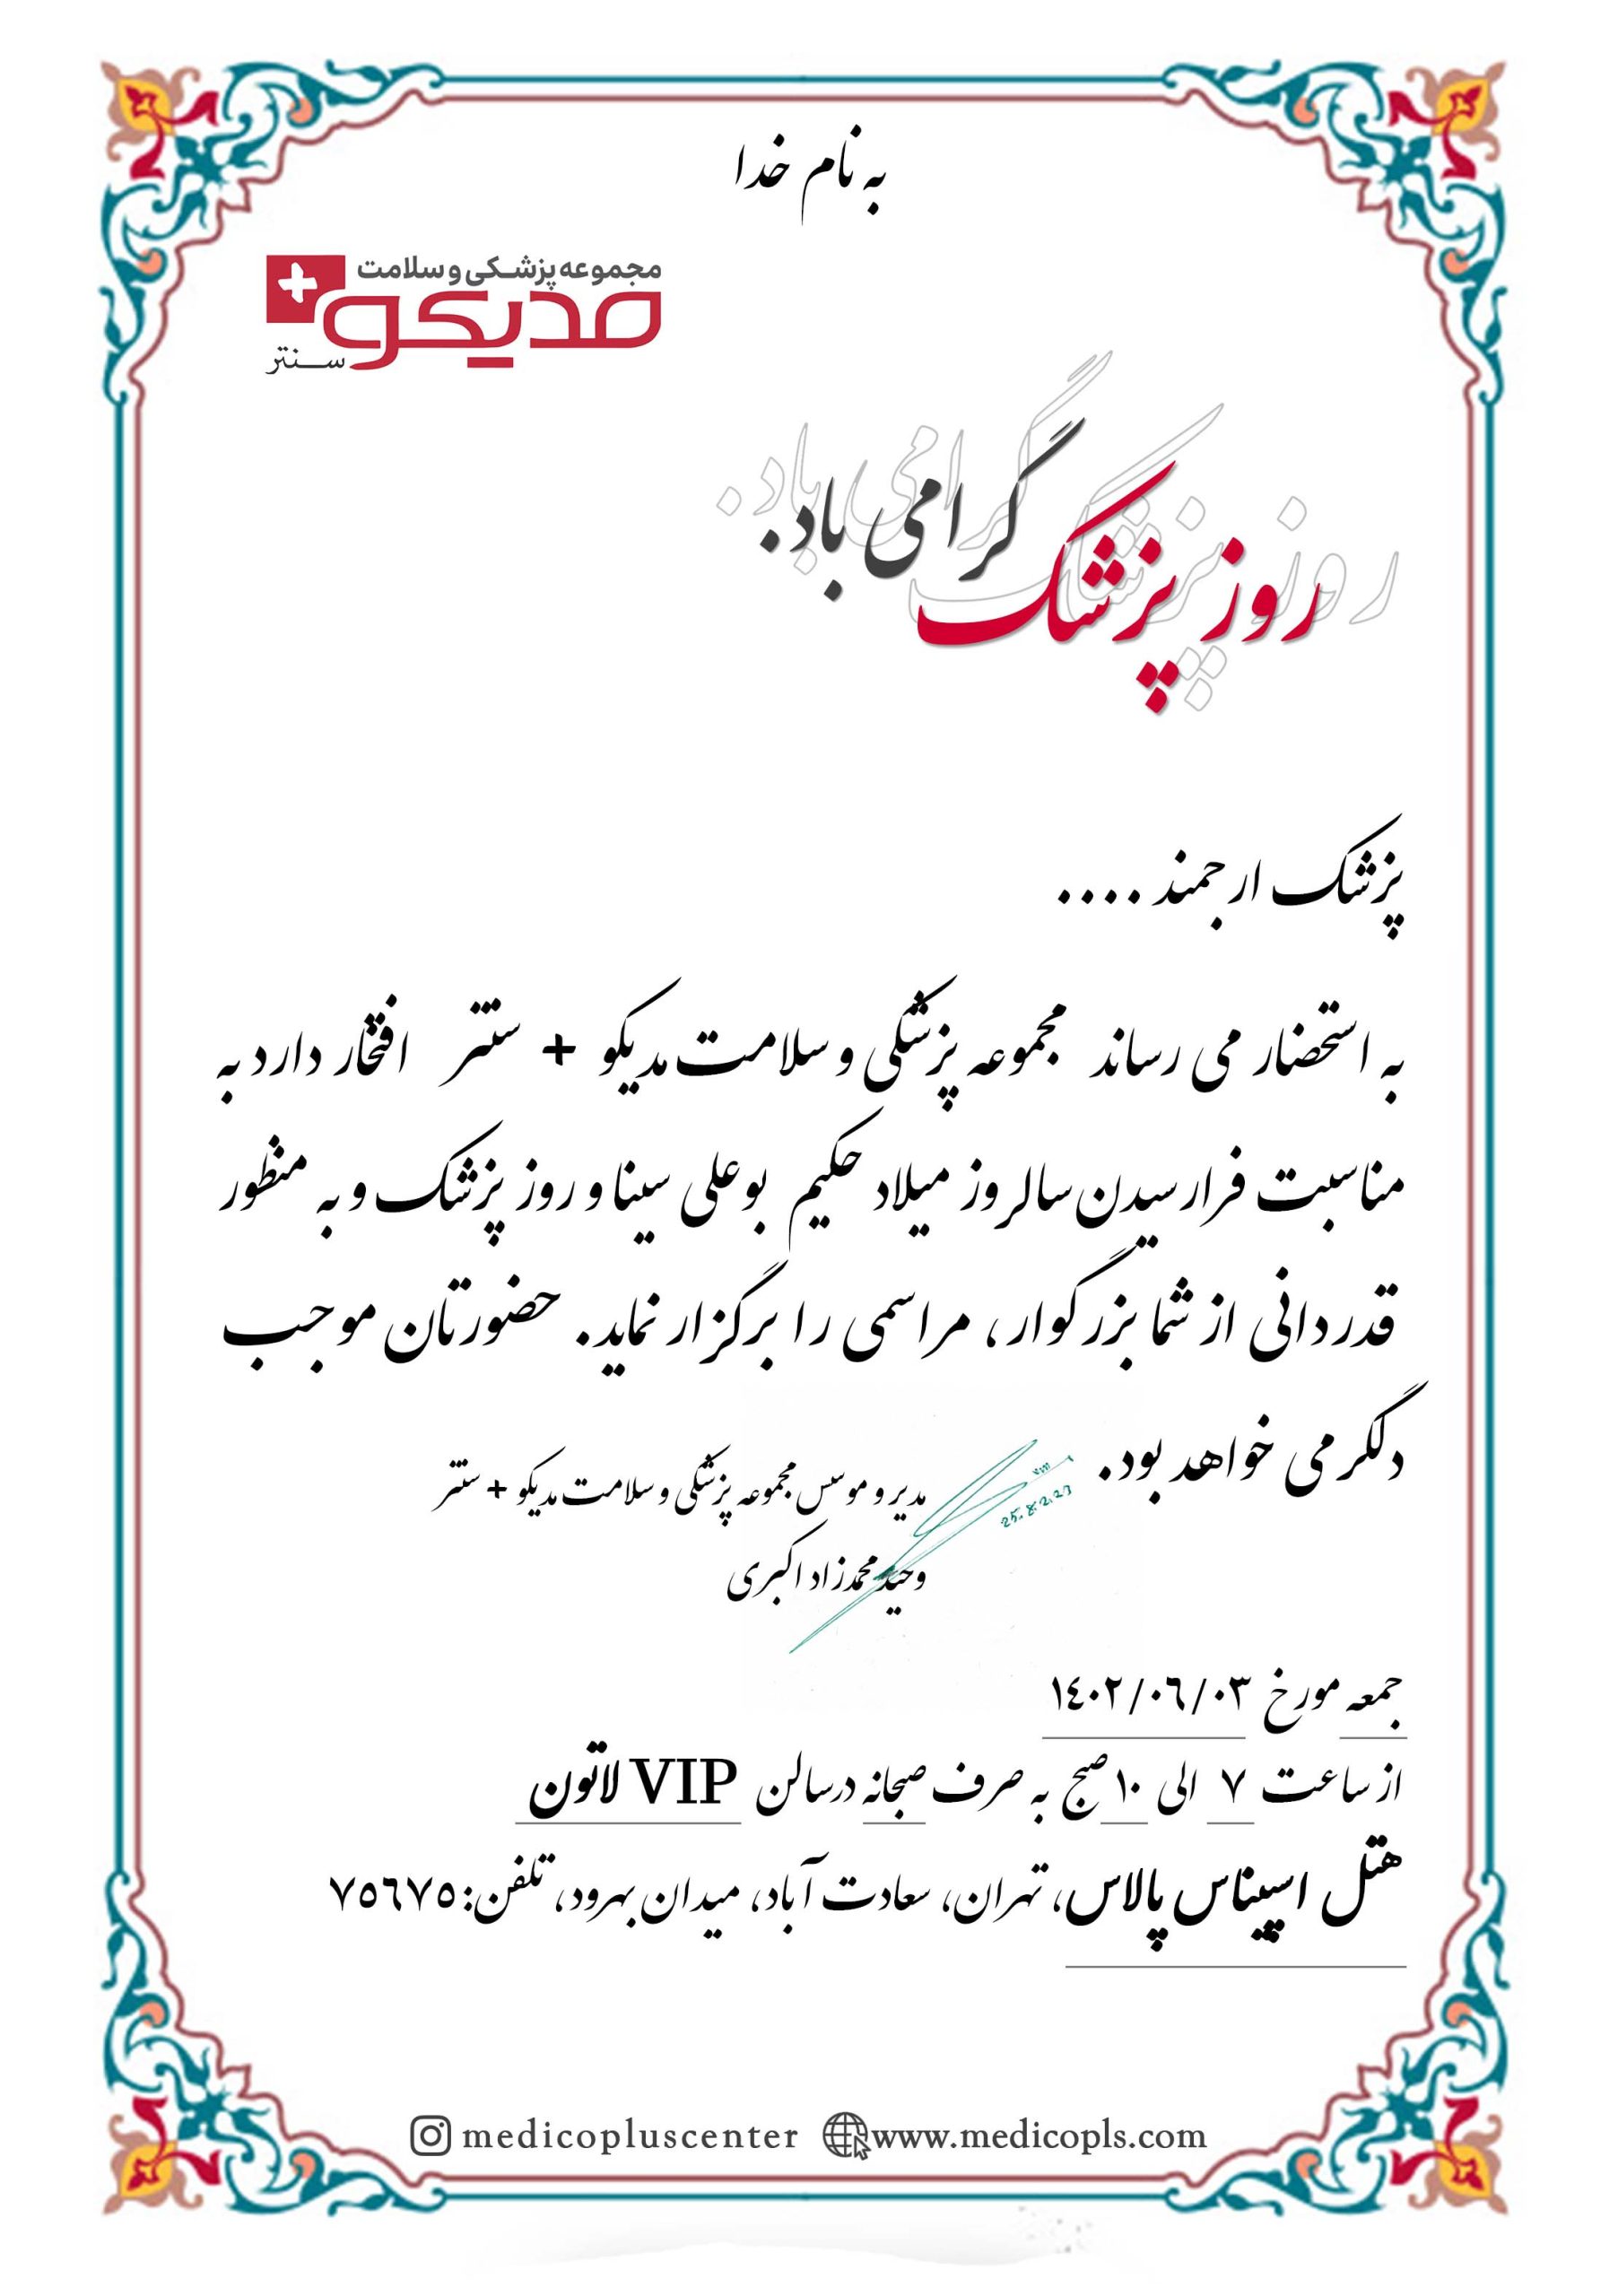 به نام خدا
مجموعه پزشکی و سلامت
مدیکو+
سنتر
روز پزشک گرامی باد.
پزشک ارجمند ....
به استحضار می رساند مجموعه پزشکی و سلامت مدیکو + سنتر افتخار دارد به
مناسبت فرارسیدن سالروز میلاد حکیم بوعلی سینا و روز پزشک و به منظور
قدردانی از شما بزرگوار، مراسمی را برگزار نماید. حضورتان موجب
دلگرمی خواهد بود.
مدیر و موسس مجموعه پزشکی و سلامت مدیکو + سنتر
وحید محمدزاد اکبری
25.8.2023
جمعه مورخ ١٤٠٢/٠٦/٠٣
از ساعت ٧ الی ١٠ صبح به صرف صبحانه درسالن VIP لاتون
هتل اسپیناس پالاس، تهران، سعادت آباد، میدان بهرود، تلفن: ٧٥٦٧٥
medicopluscenter www.medicopls.com